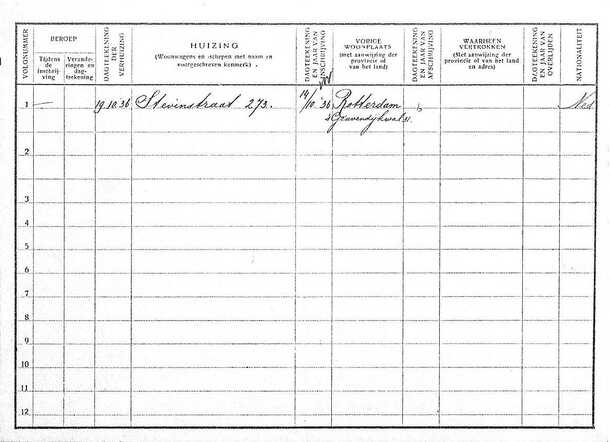 VOLGNUMMER
BEROEP
Tijdens de inschrijving
Veranderingen en dagteekening
DAGTEEKENING DER VERHUIZING
HUIZING
(Woonwagens en -schepen met naam en voorgeschreven kenmerk)
DAGTEEKENING EN JAAR VAN INSCHRIJVING
VORIGE WOONPLAATS
(met aanwijzing der provincie of van het land)
DAGTEEKENING EN JAAR VAN AFSCHRIJVING
WAARHEEN VERTROKKEN
(Met aanwijzing der provincie of van het land en adres)
DAGTEEKENING EN JAAR VAN OVERLIJDEN
NATIONALITEIT
1 — 19.10.36 Stevinstraat 273. 14/10 '36 Rotterdam 6 Ned
's Gravendijkwal
2
3
4
5
6
7
8
9
10
11
12